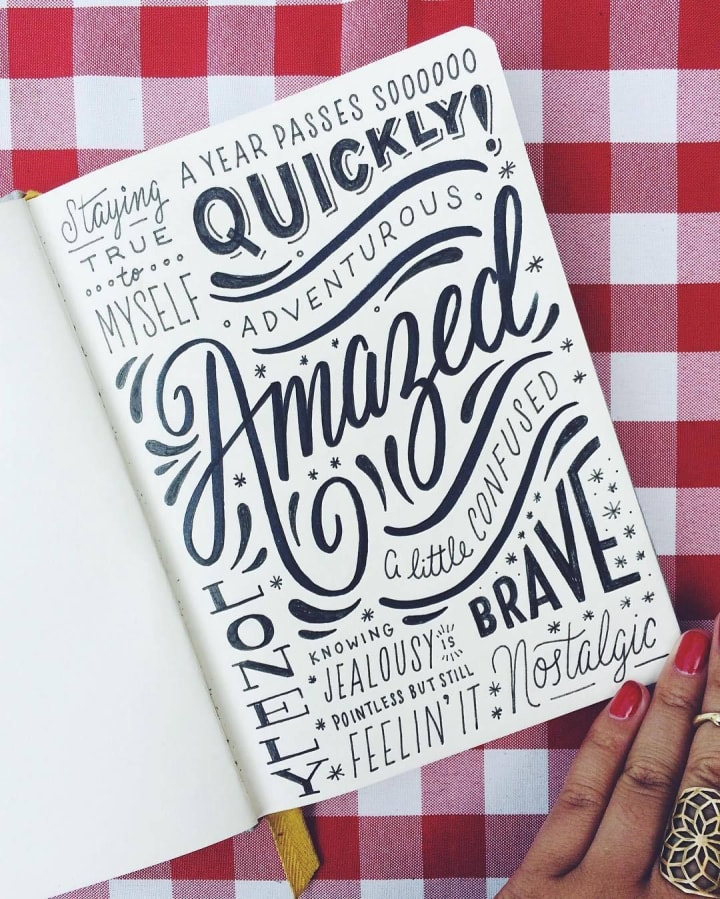 A YEAR PASSES SOOOOOO
QUICKLY!
Staying
TRUE
to
MYSELF
ADVENTUROUS
Amazed
A little CONFUSED
BRAVE
LONELY
KNOWING
JEALOUSY IS
POINTLESS BUT STILL
FEELIN' IT
Nostalgic